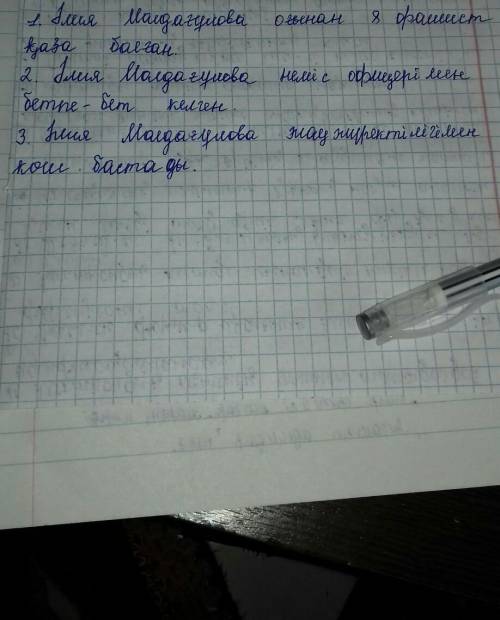 1. Әлия Молдағулова оғынан 8 фашист
қаза болған.
2. Әлия Молдағулова неміс офицерімен
бетпе-бет келген.
3. Әлия Молдағулова жаужүректілігімен
көш бастады.